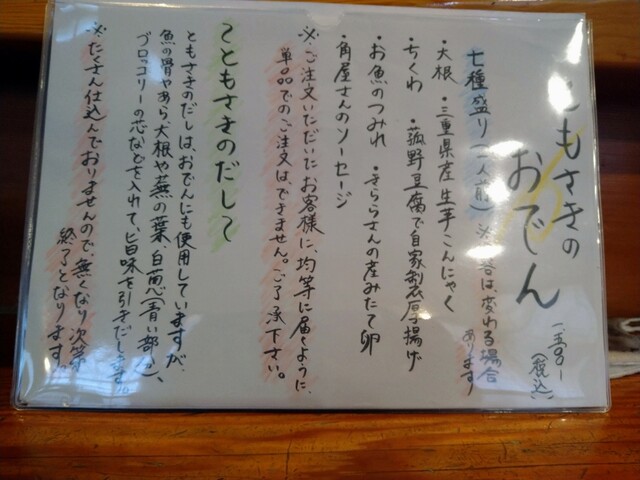 ともさきの
おでん
一、五〇〇-
(税込)
七種盛り(一人前) ※内容は、変わる場合
あります
・大根 ・三重県産生芋こんにゃく
・ちくわ ・菰野豆腐で自家製厚揚げ
・お魚のつみれ ・きららさんの産みたて卵
・角屋さんのソーセージ
※ご注文いただいたお客様に、均等に届くように、
単品でのご注文は、できません。ご了承下さい。
〈ともさきのだし〉
ともさきのだしは、おでんにも使用していますが、
魚の骨やあら、大根や蕪の葉、白葱(青い部分)、
ブロッコリーの芯などを入れて、旨味を引きだします。
※たくさん仕込んでおりませんので、無くなり次第
終了となります。